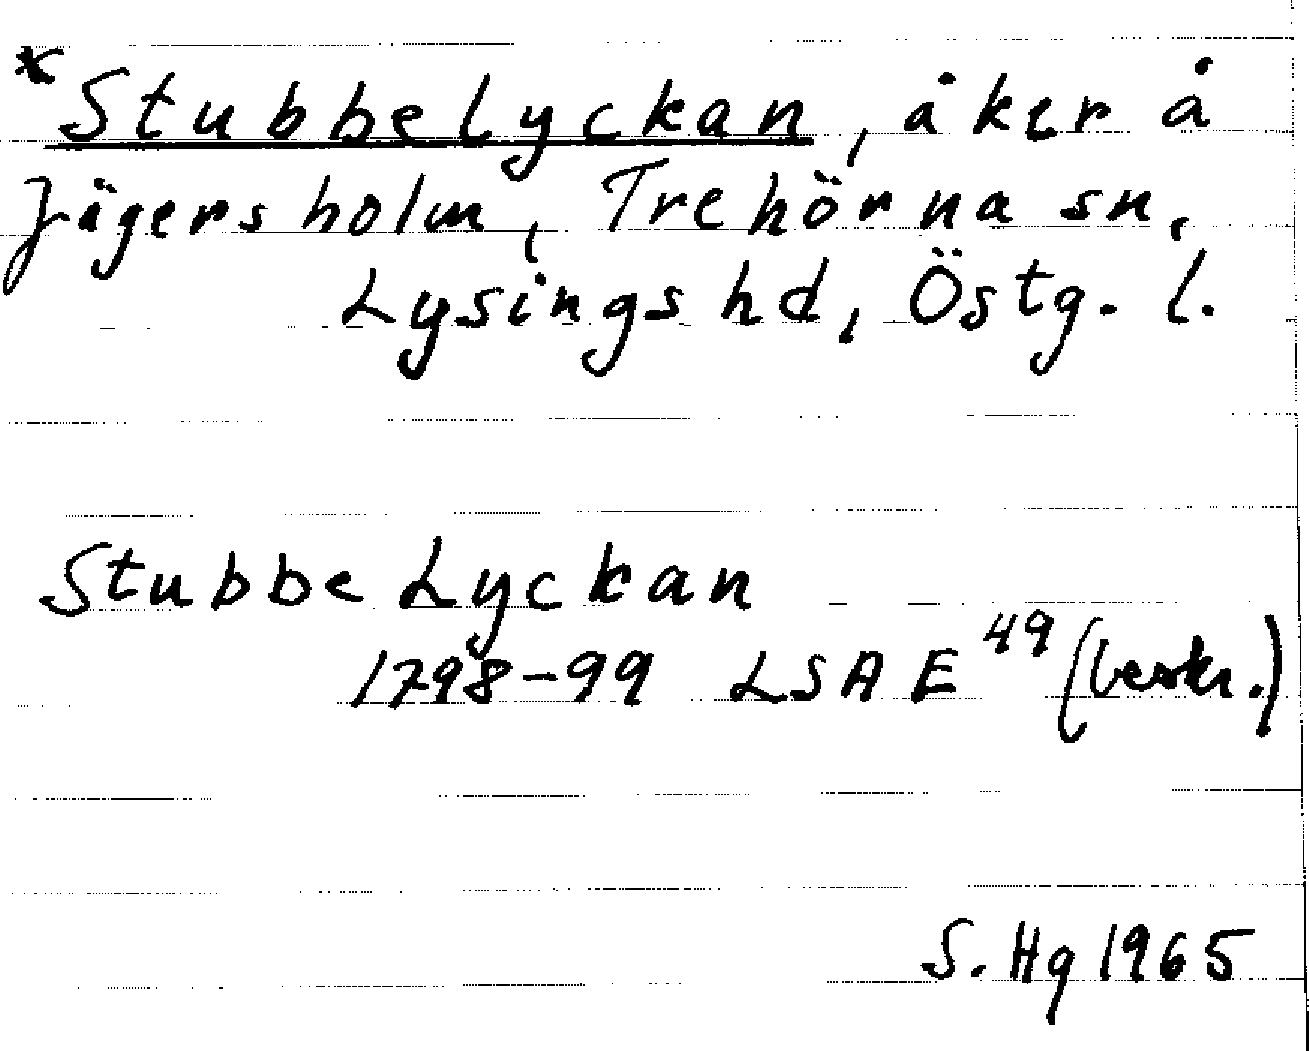 * Stubbelyckan, åker å
Jägersholm, Trehörna sn,
Lysings hd, Östg. l.
Stubbe Lyckan
1798-99 LSA E 49 (beskr.)
S. Hg 1965